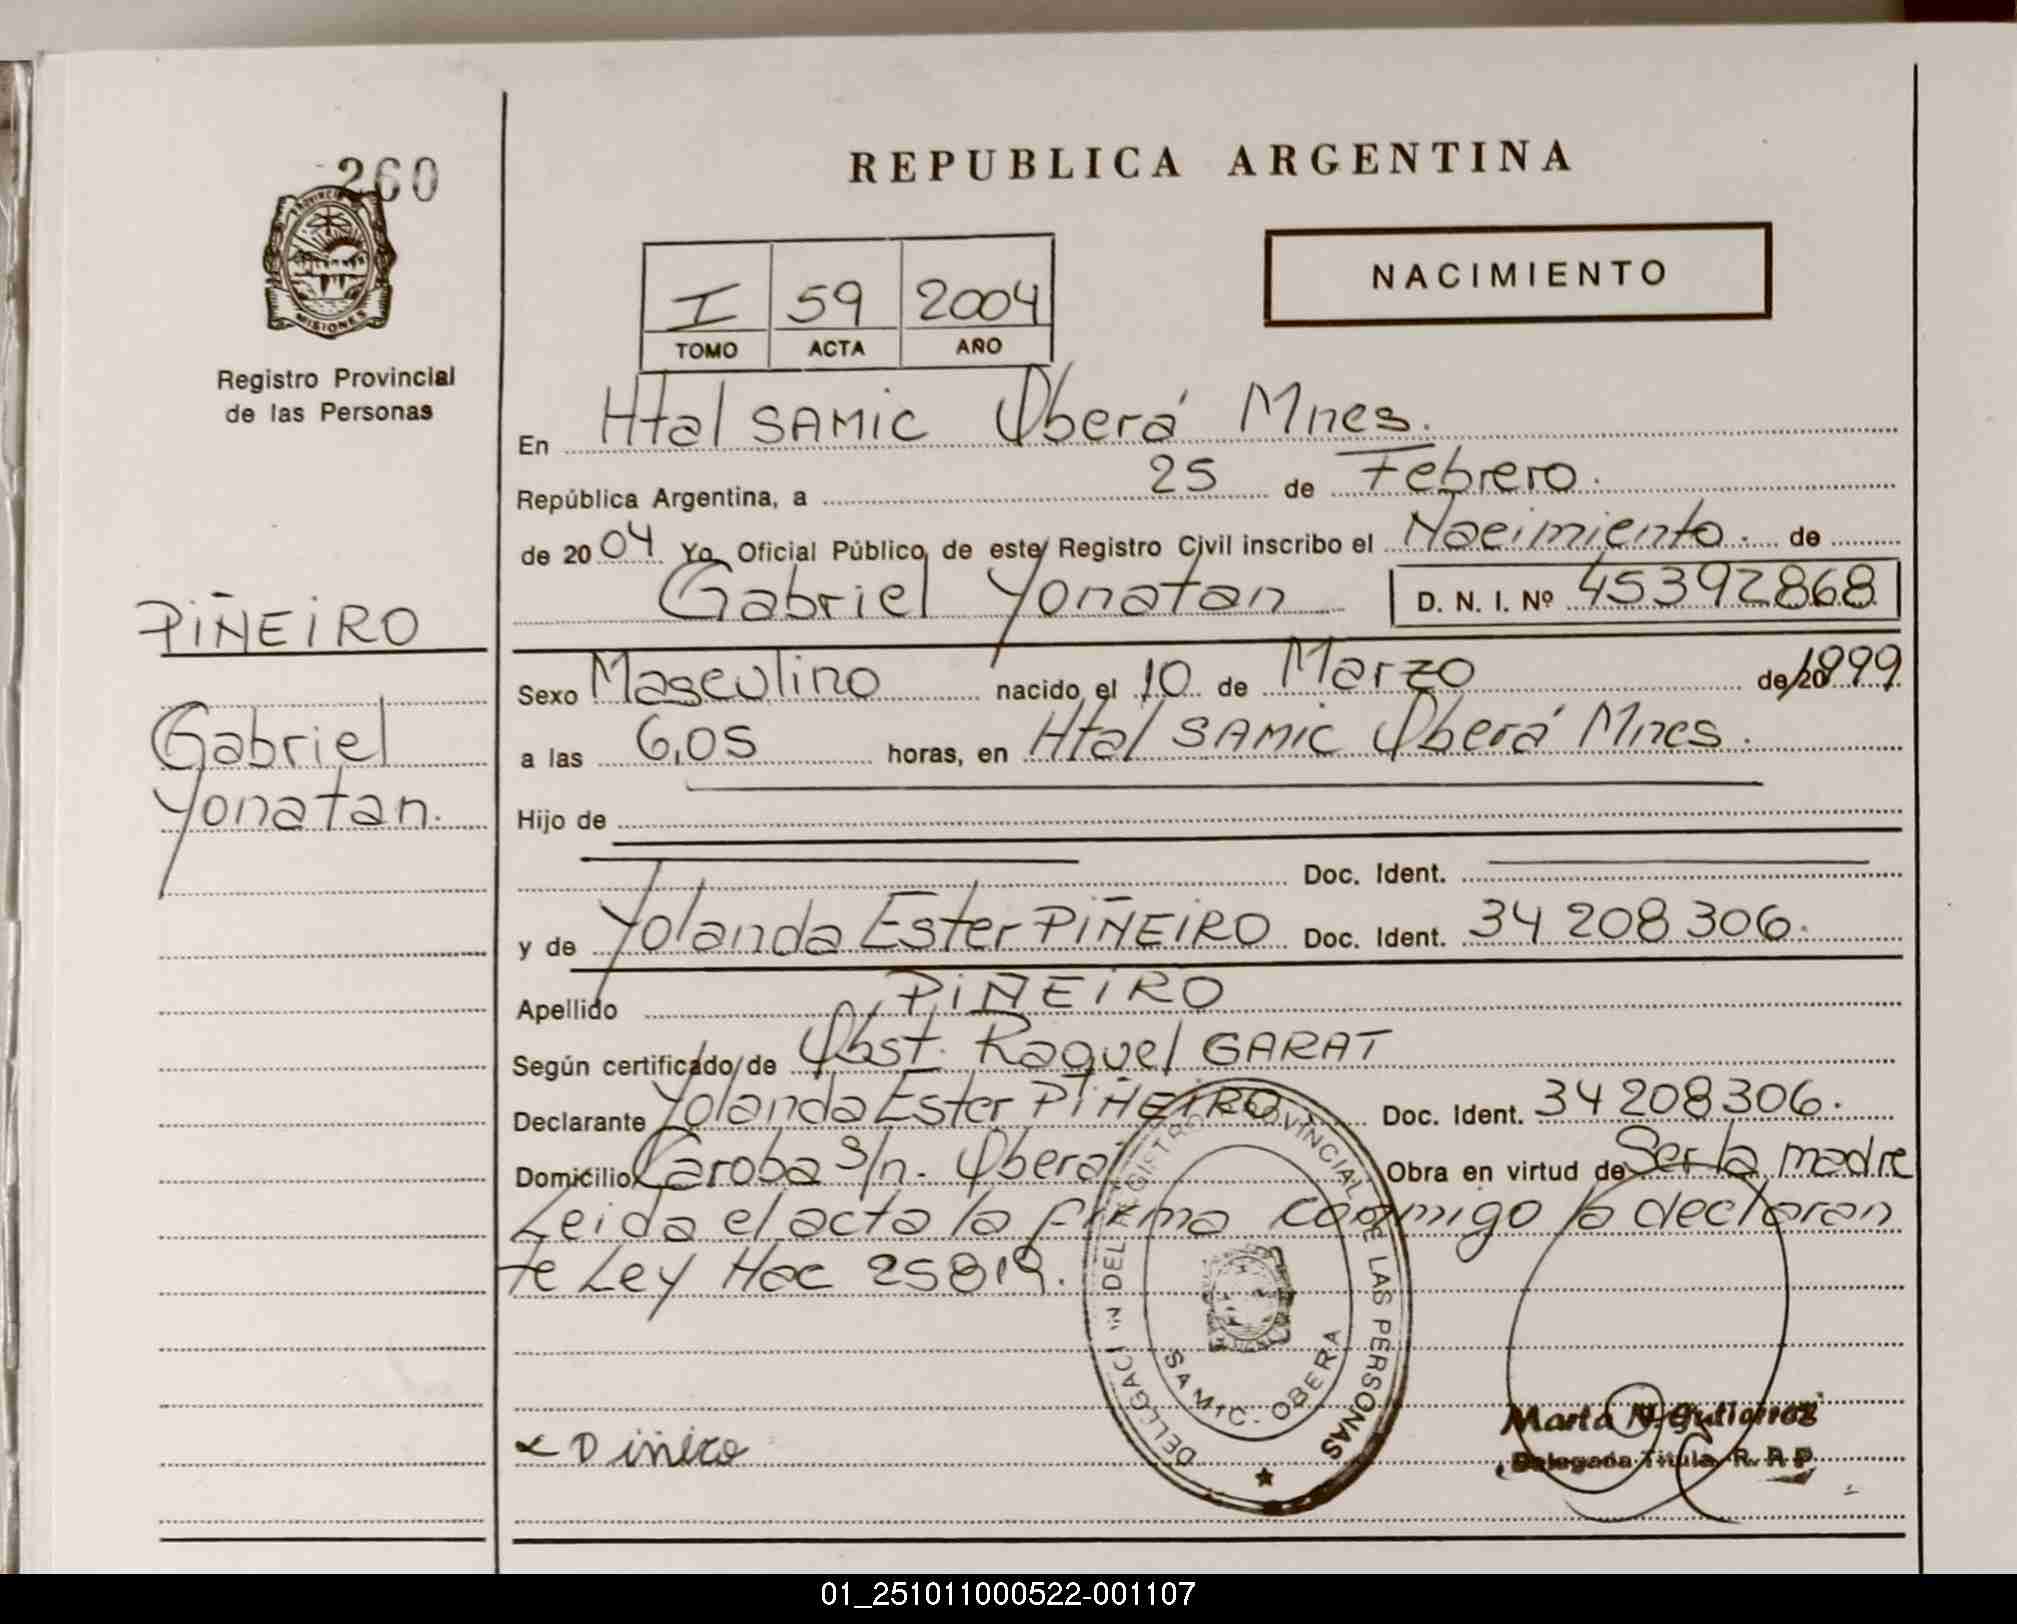 260
PROVINCIA
MISIONES
Registro Provincial
de las Personas
PIÑEIRO
Gabriel
Yonatan.
REPUBLICA ARGENTINA
I 59 2004
TOMO ACTA AÑO
NACIMIENTO
En Htal SAMIC Oberá Mnes.
República Argentina, a 25 de Febrero.
de 2004 Yo, Oficial Público, de este Registro Civil inscribo el Nacimiento. de
Gabriel Yonatan D. N. I. Nº 45392868
Sexo Masculino nacido el 10 de Marzo de 1999
a las 6,05 horas, en Htal SAMIC Oberá Mnes.
Hijo de
Doc. Ident.
y de Yolanda Ester PIÑEIRO Doc. Ident. 34 208 306.
Apellido PIÑEIRO
Según certificado de Obst. Raquel GARAT
Declarante Yolanda Ester PIÑEIRO Doc. Ident. 34 208 306.
Domicilio Caroba S/n. Oberá Obra en virtud de Ser la madre
Leida el acta la firma conmigo la declaran
te Ley Nac 25819.
DELEGACION DEL REGISTRO PROVINCIAL DE LAS PERSONAS
SAMIC - OBERA
Marta N. Gutierrez
Delegada Titular R. P. P.
01_251011000522-001107